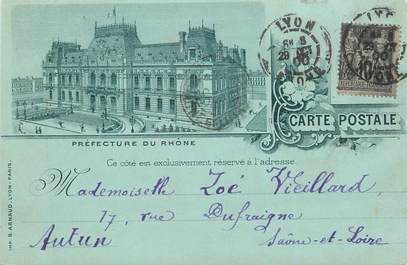 LYON
RHONE
LYON
PRÉFECTURE DU RHÔNE
CARTE POSTALE
Ce côté est exclusivement reservé à l'adresse.
Mademoiselle Zoé Vieillard,
17, rue Dufraigne
Autun
Saône-et-Loire
IMP. B. ARNAUD, LYON-PARIS.